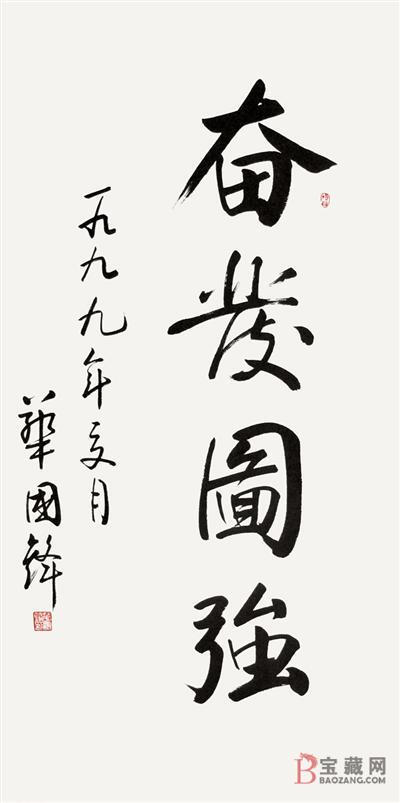 奋發圖強
一九九九年夏月
華國鋒
宝藏网
BAOZANG.COM